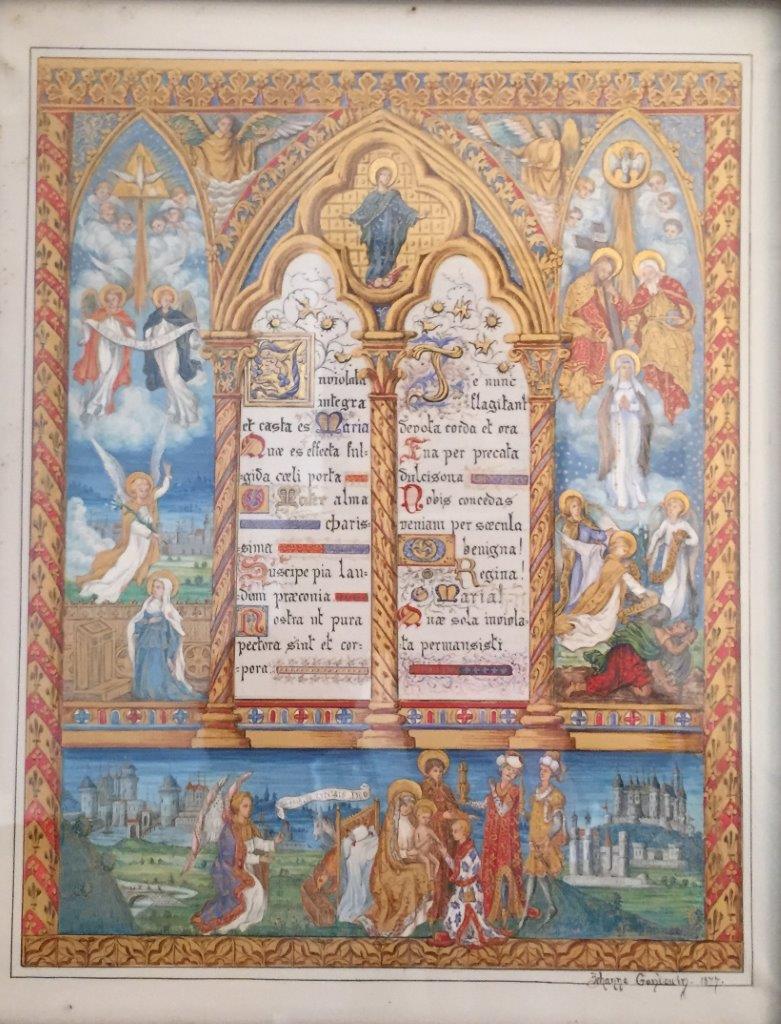 Inviolata
integra
et casta es Maria
Quæ es effecta ful-
gida cœli porta
O Mater alma
charis-
sima
Suscipe pia lau-
dum præconia
Nostra ut pura
pectora sint et cor-
pora.
Te nunc
flagitant
devota corda et ora
Tua per precata
dulcisona
Nobis concedas
veniam per sæcula
O benigna!
O Regina!
O Maria!
Quæ sola inviola-
ta permansisti
1877.